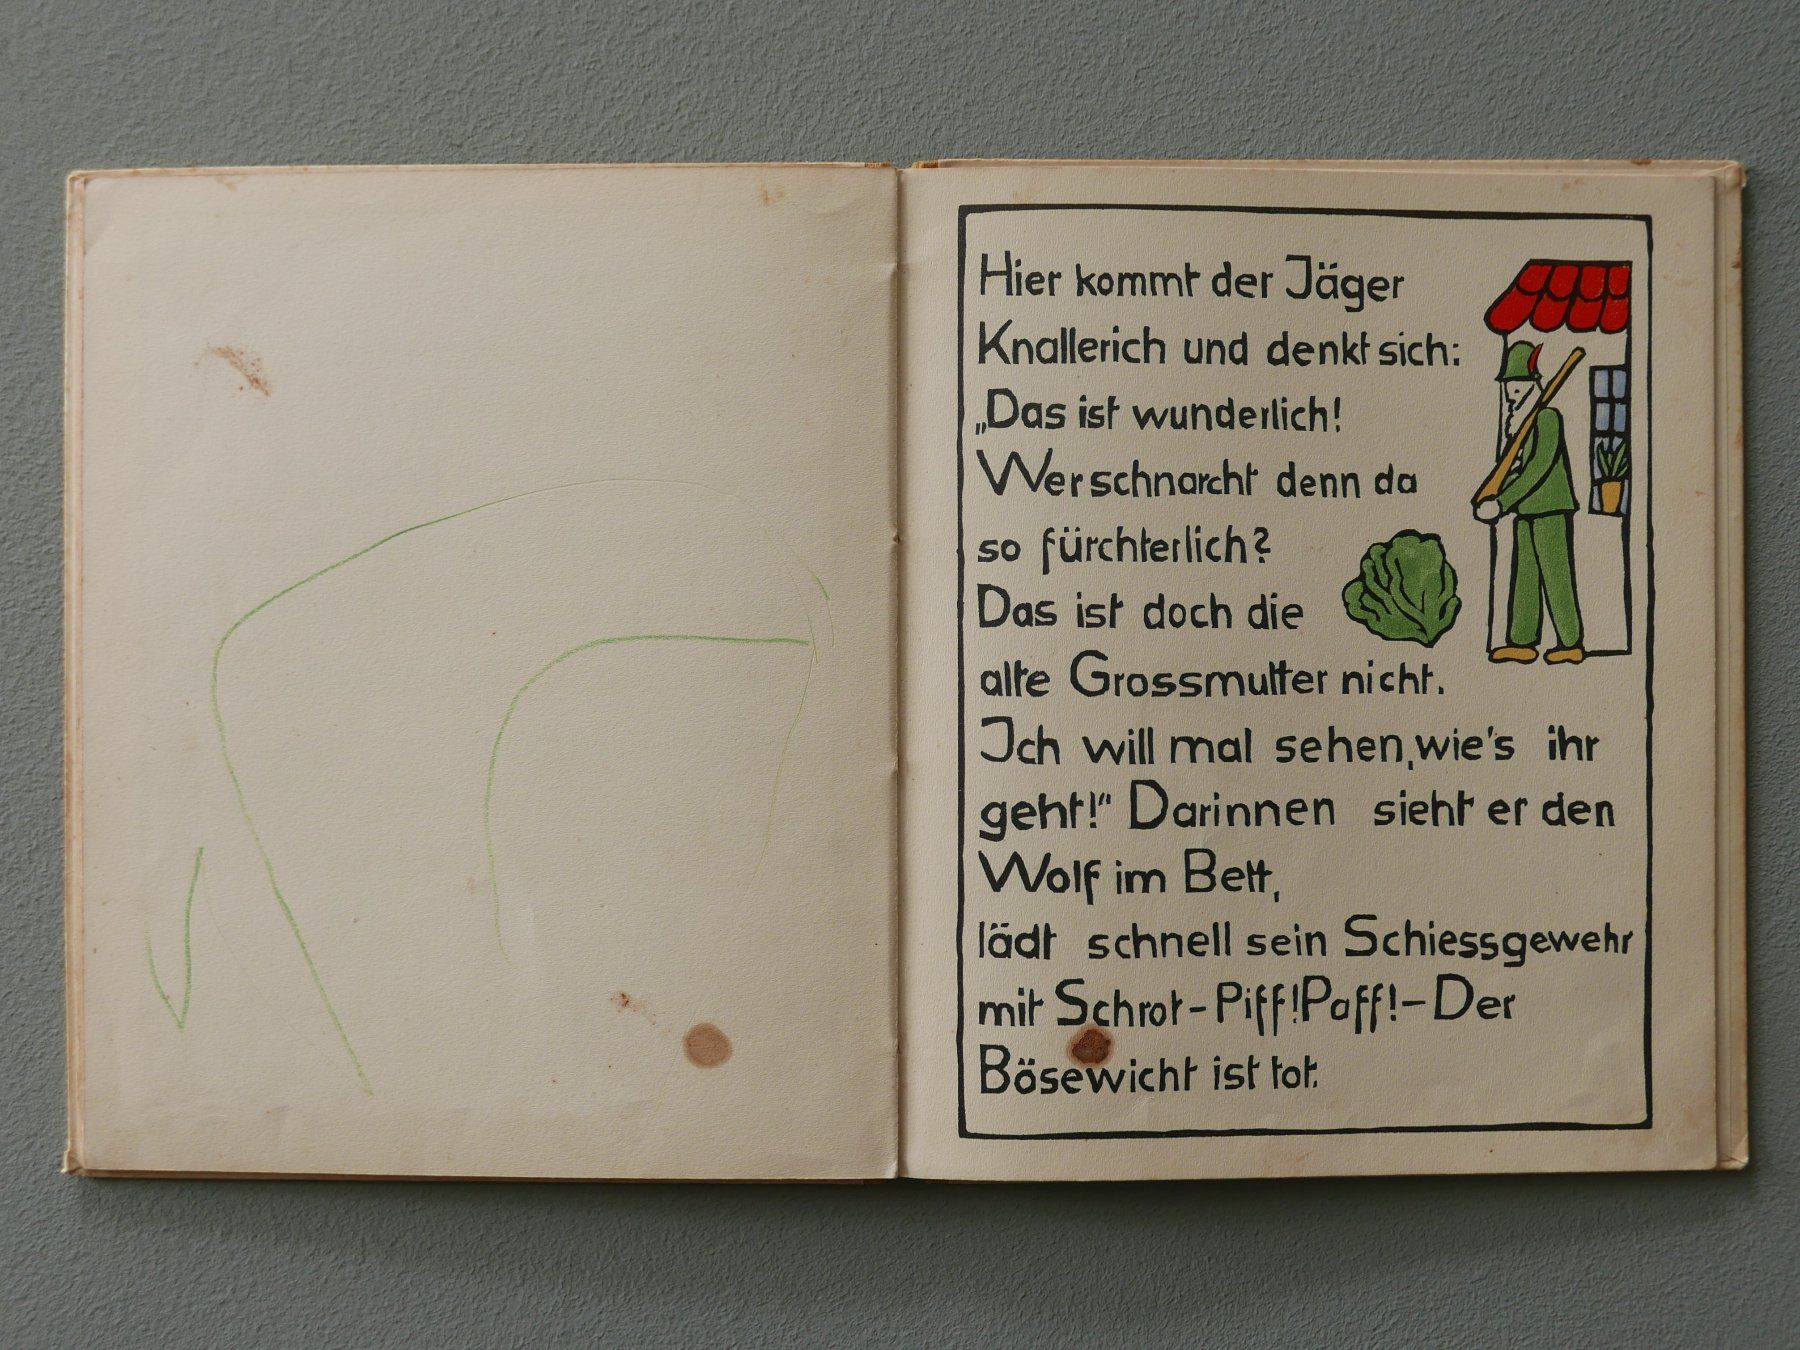 Hier kommt der Jäger
Knallerich und denkt sich:
„Das ist wunderlich!
Wer schnarcht denn da
so fürchterlich?
Das ist doch die
alte Grossmutter nicht.
Ich will mal sehen, wie's ihr
geht!“ Darinnen sieht er den
Wolf im Bett,
lädt schnell sein Schiessgewehr
mit Schrot – Piff! Paff! – Der
Bösewicht ist tot.